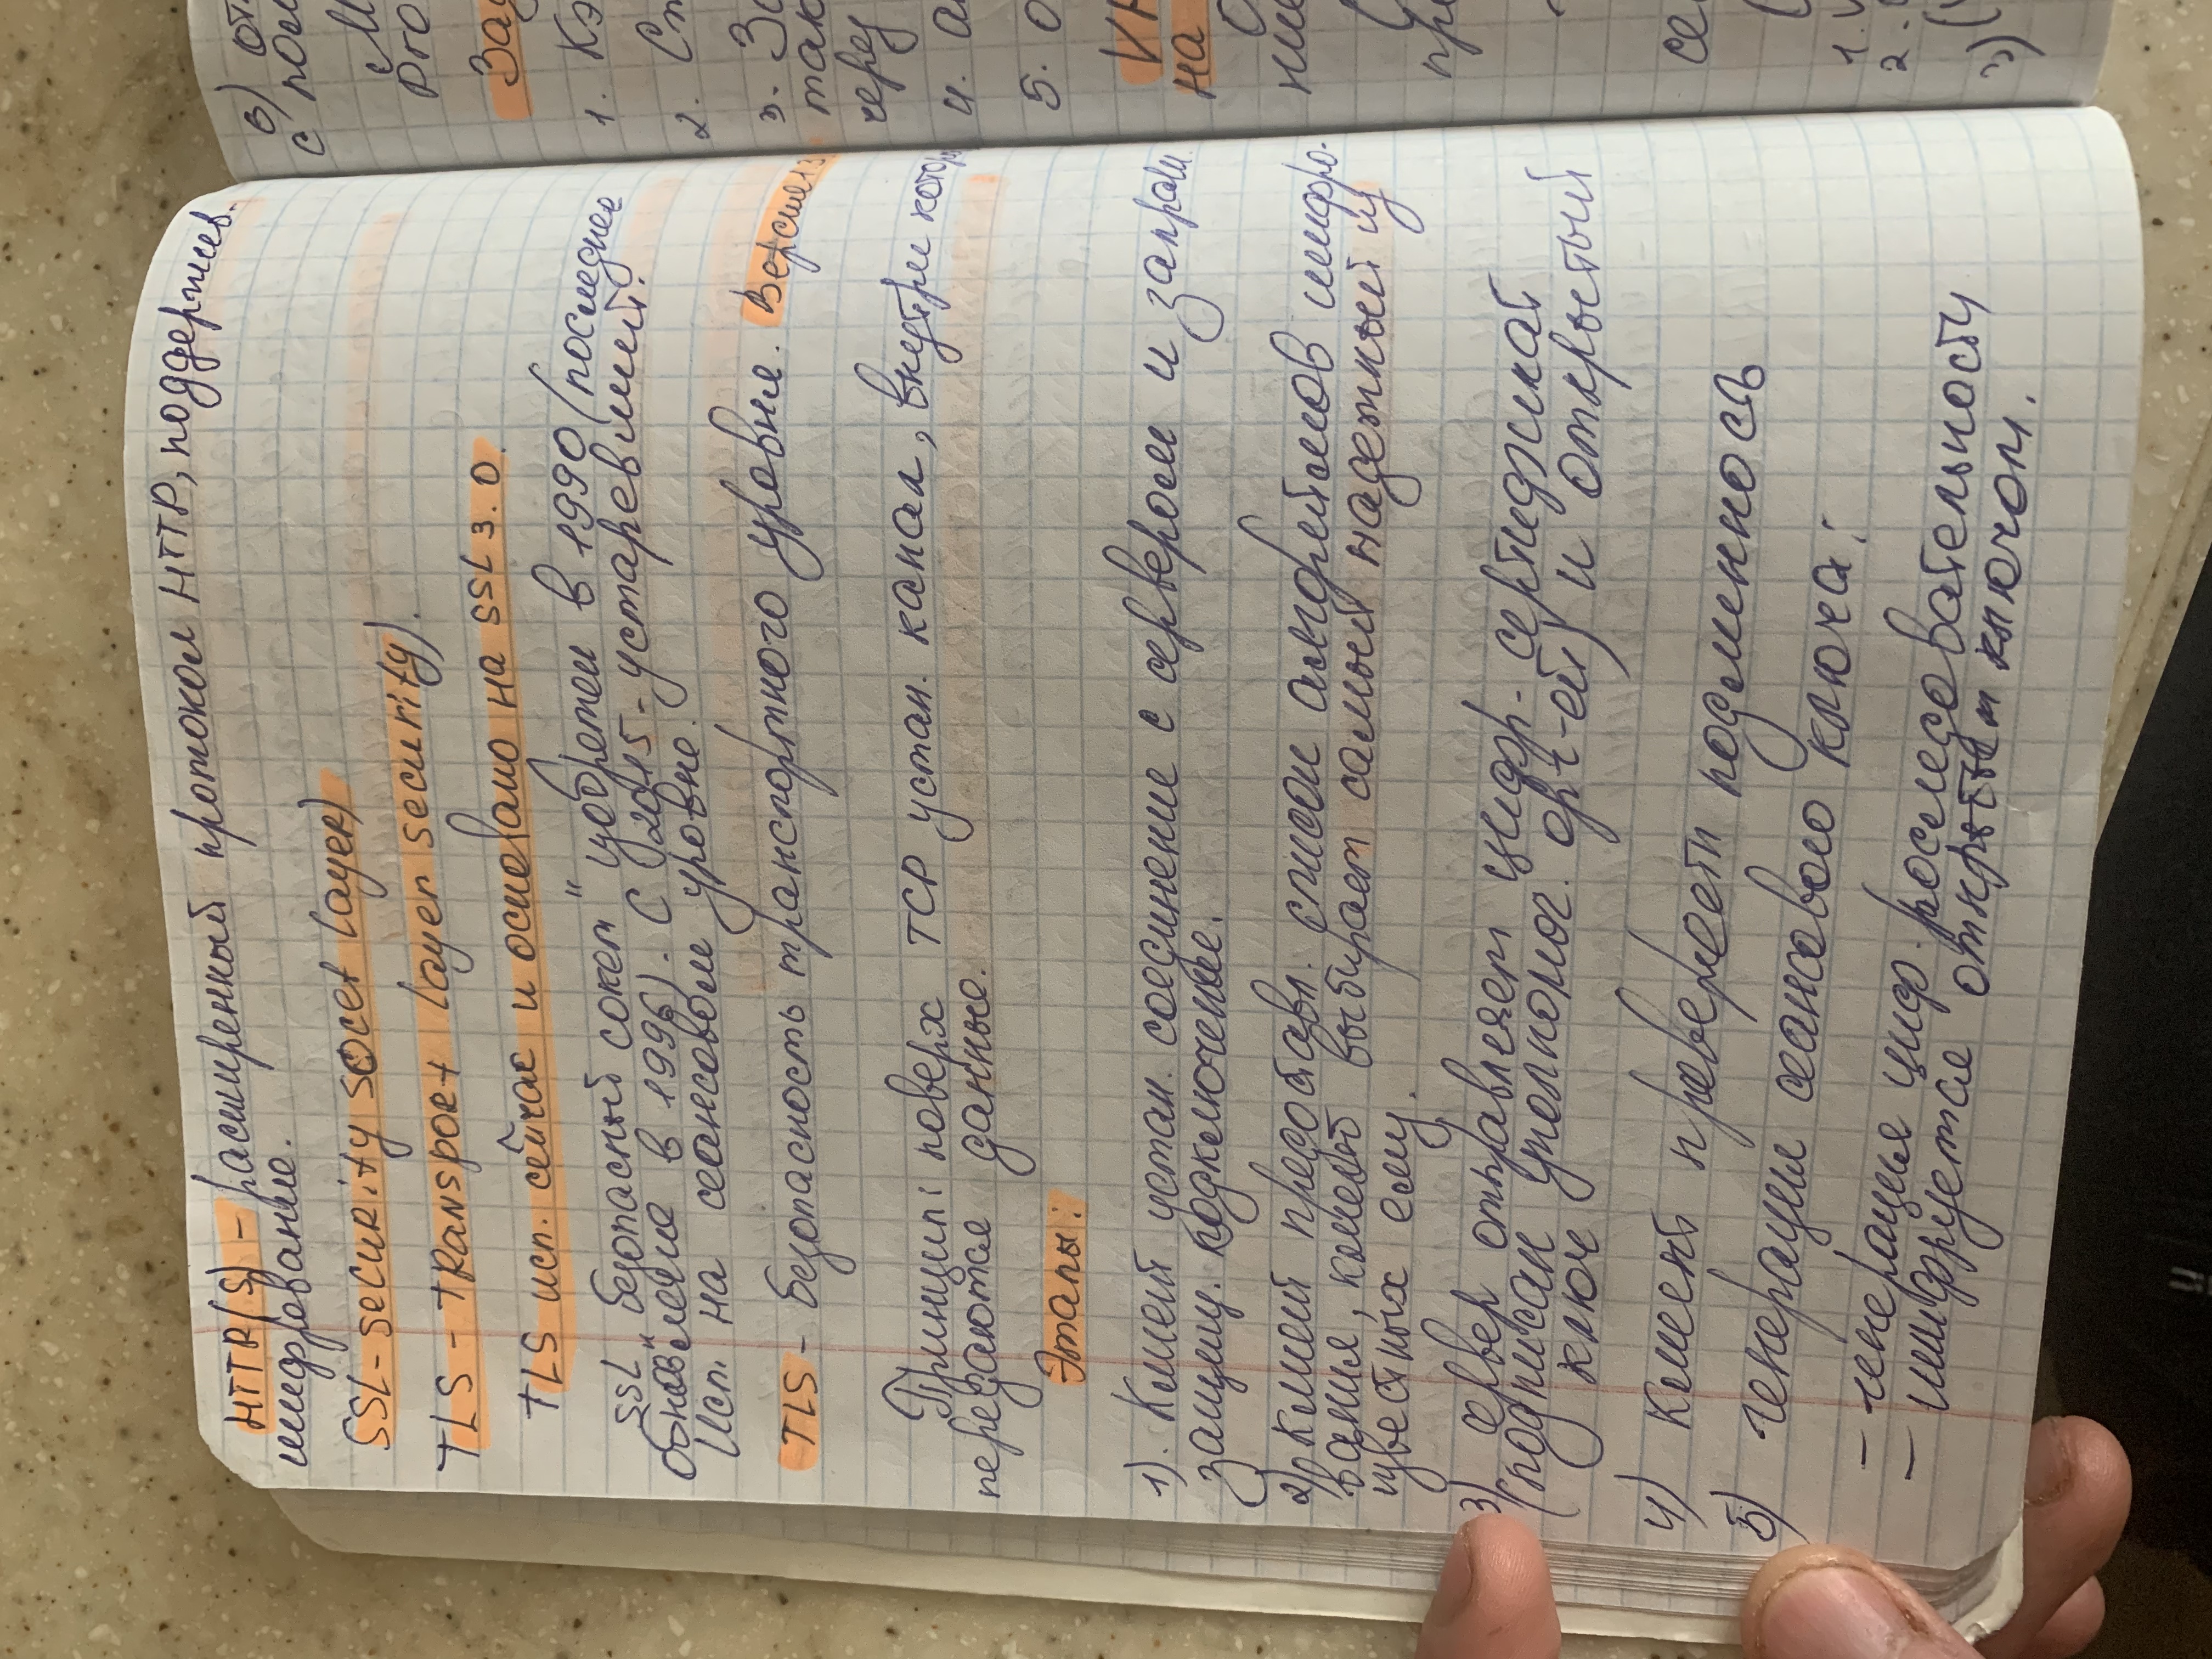 HTTP(S) - расширенный протокол HTTP, поддержив.
шифрование.
SSL - security socet layer)
TLS - transport layer security).
TLS исп. сейчас и основано на SSL 3.0.
SSL "безопасный сокет" изобретен в 1990 (последнее
обновление в 1996). С 2015 - устаревший.
Исп. на сеансовом уровне.
TLS - безопасность транспортного уровня. Версия 1.3.
Принцип: поверх TCP устан. канал, внутри котор
передаются данные.
Этапы:
1). Клиент устан. соединение с сервером и запраш.
защищ. подключение.
2) Клиент предоставл. список алгоритмов шифро-
вания, клиент выбирает самый надежный из
известных ему.
3) сервер отправляет цифр. сертификат
(подписан уполномог. орг-ей) и открытый
ключ
4) Клиент проверяет подлинность
5) генерация сеансового ключа:
- генерация цифр. последовательности
- шифруется открытым ключом.
6) от
с пом
М
pro
Зад
1. Кэ
2. Сп
3. За
так
через
4. а
5. о
на
ние
пр
се
1.
2.
3) (